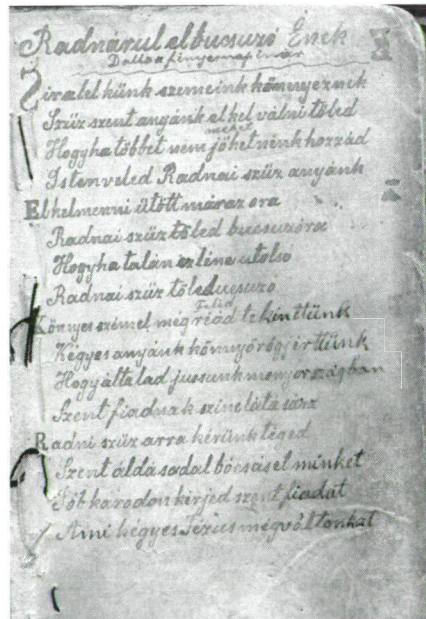 Radnárul elbucsuzó Ének
Dallo a fényes nap
Siralel künk szemeink könnyeznek
Szüz szent anyánk el kel válni töled
mehet
Hogyha többet nem jöhetnénk hozzád
Istenveled Radnai szüz anyánk
El kel menni ütött már az ora
Radnai szüz töled bucsuzóra
Hogyha talán ez léne utolso
Radnai szüz töled ucsuzo
Feléd
Könnyes szimel még réád tekinttünk
Kégyes anyánk könnyörögj érttünk
Hogy általad jussunk menyországban
Szent fiadnak szine látására
Radni szüz arra kérünk téged
Szent áldásadal bócsásel minket
Jób karodon kérjed szent fiadat
Ami kégyes Jézus megváltonkat